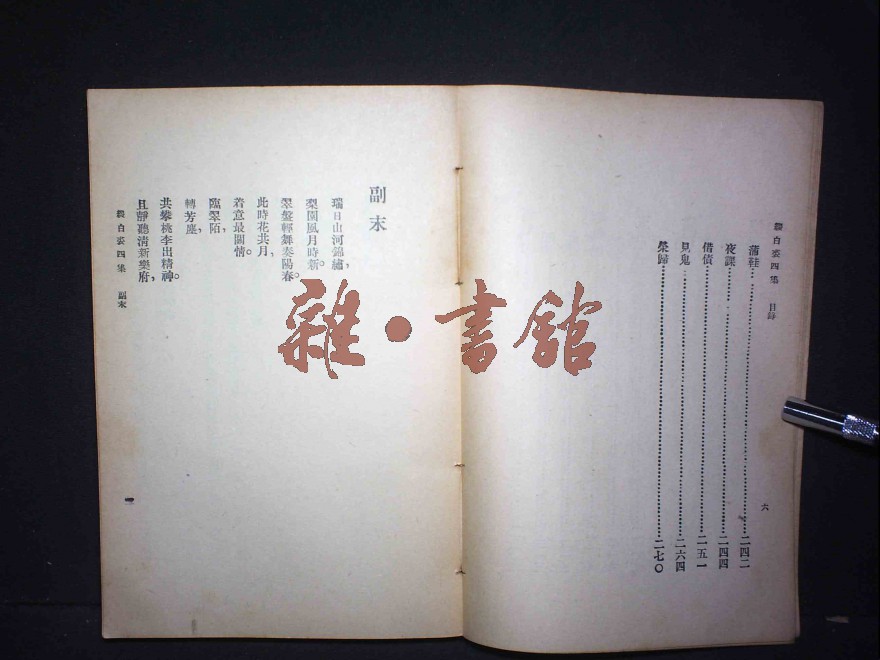 綴白裘四集 目錄
蒲鞋……二四二
夜課……二四四
借債……二五一
見鬼……二六四
榮歸……二七〇
六
副末
瑞日山河錦繡，
梨園風月時新。
翠盤輕舞奏陽春。
此時花共月，
着意最關情。
臨翠陌，
轉芳塵，
共攀桃李出精神。
且靜聽清新樂府，
綴白裘四集 副末
一
雜·書館